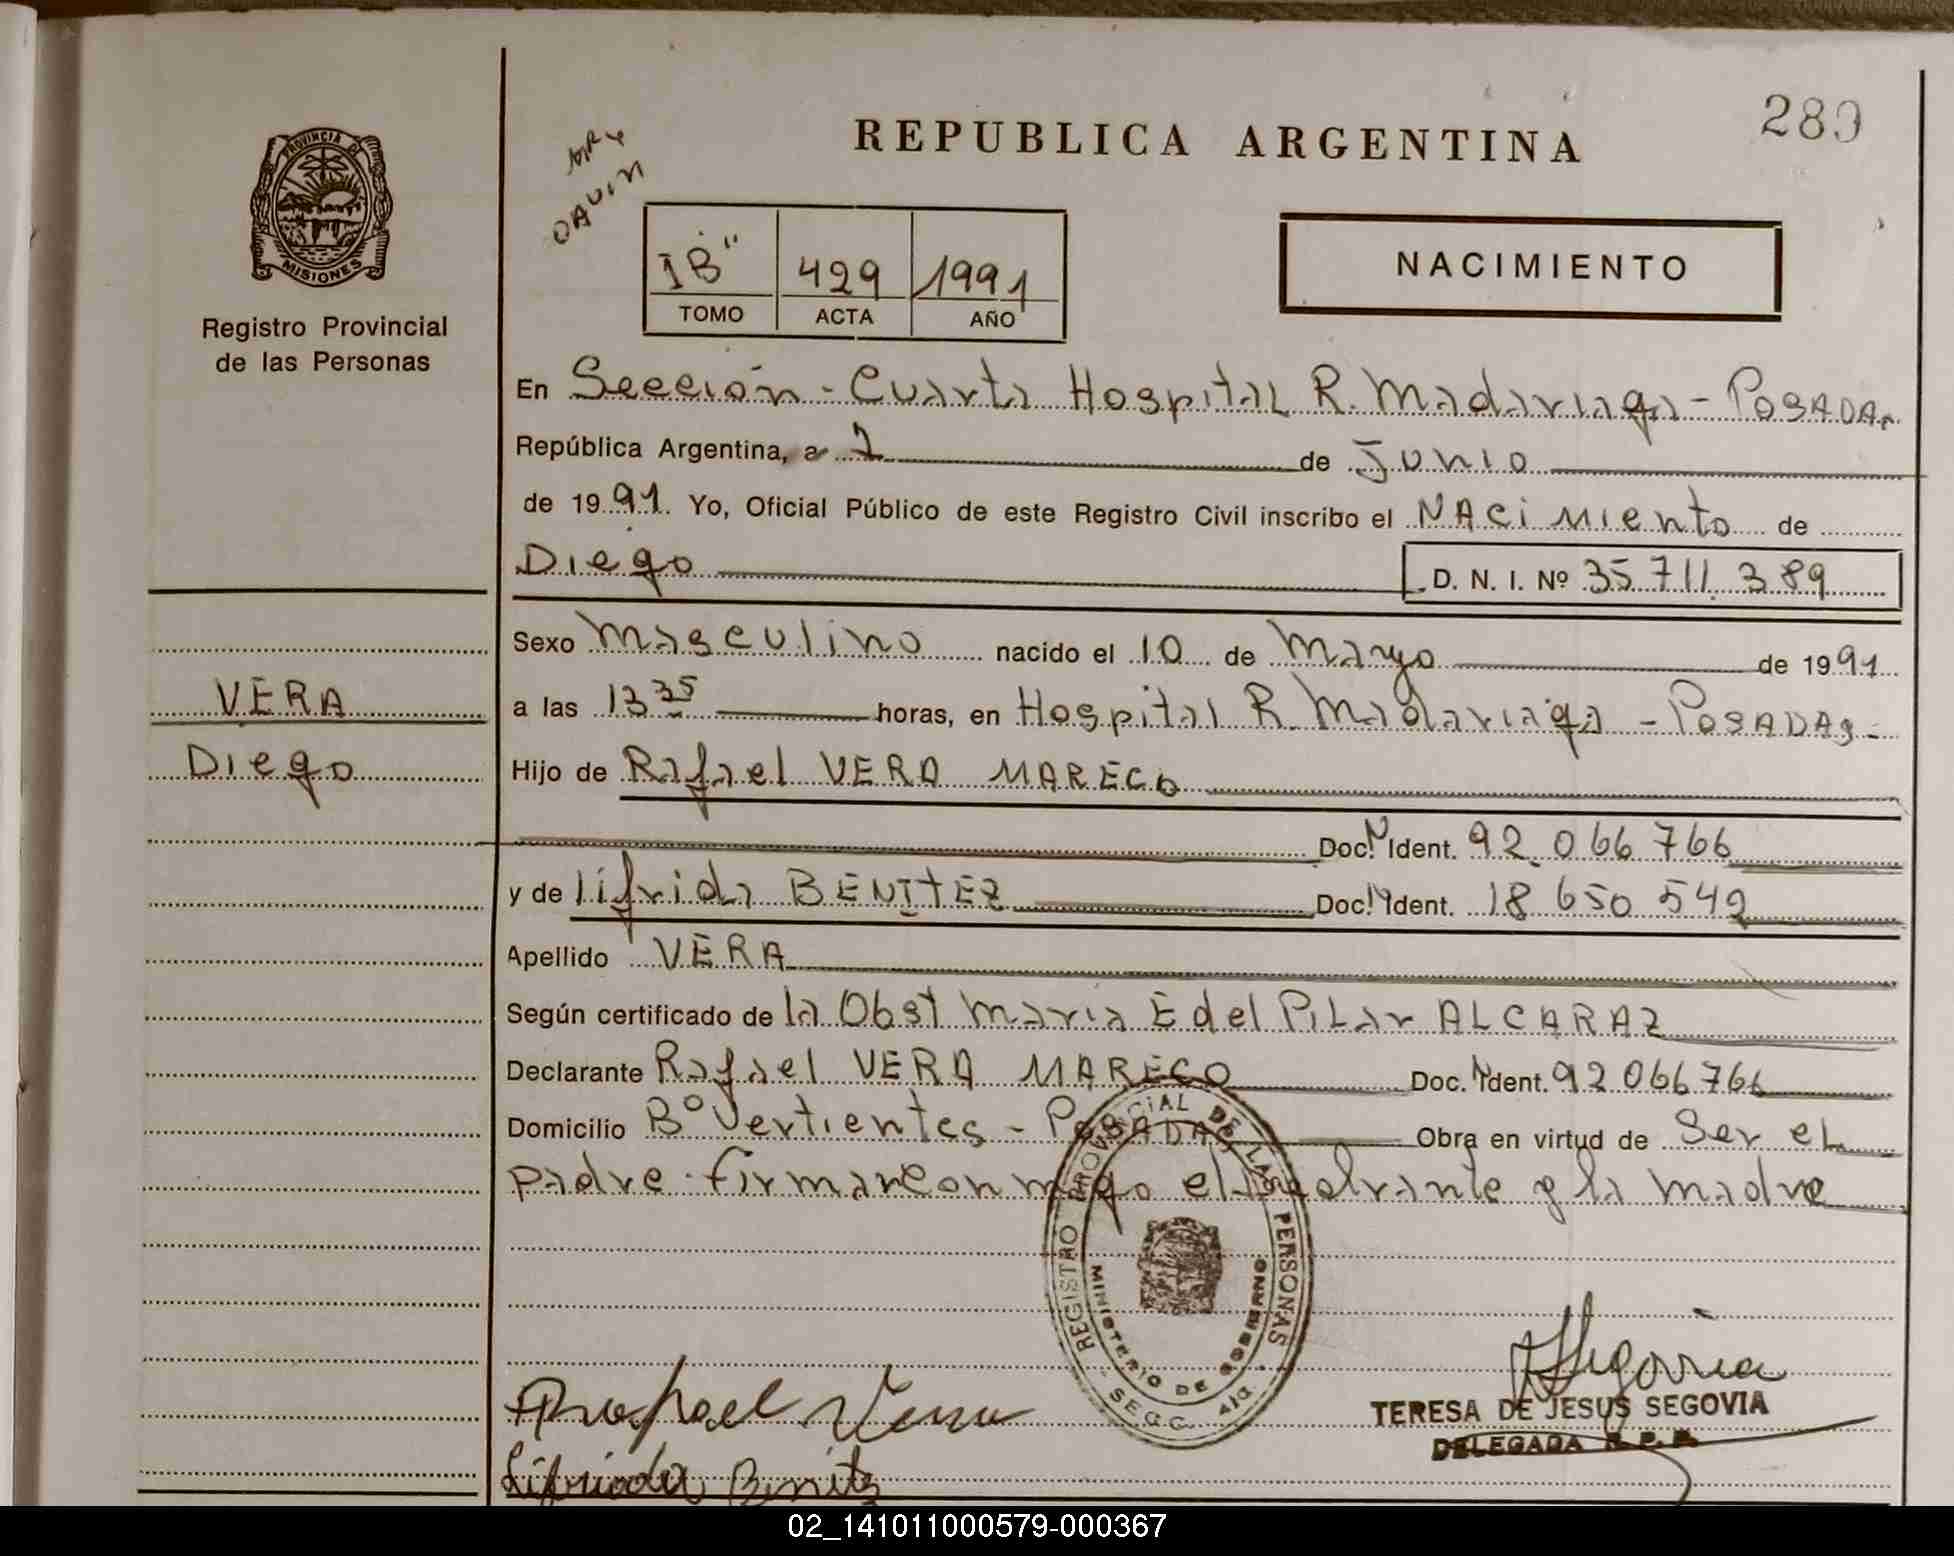 289
REPUBLICA ARGENTINA
PROVINCIA DE
MISIONES
Registro Provincial
de las Personas
1B" 429 1991
TOMO ACTA AÑO
NACIMIENTO
En Sección - Cuarta Hospital R. Madariaga - POSADAS
República Argentina, a 7 de Junio
de 1991. Yo, Oficial Público de este Registro Civil inscribo el NACimiento de
Diego D. N. I. Nº 35.711.389
Sexo Masculino nacido el 10 de Mayo de 1991
VERA
a las 13 35 horas, en Hospital R. Madariaga - POSADAS -
Diego
Hijo de Rafael VERA MARECO
Doc. N Ident. 92.066.766
y de Lifrida BENITEZ Doc. N Ident. 18 650 542
Apellido VERA
Según certificado de la Obst Maria E del Pilar ALCARAZ
Declarante Rafael VERA MARECO Doc. N Ident. 92 066766
Domicilio Bº Vertientes - POSADAS Obra en virtud de Ser el
padre. firman conmigo el declarante y la madre
REGISTRO PROVINCIAL DE LAS PERSONAS
MINISTERIO DE GOBIERNO
Rafael Vera
Segovia
TERESA DE JESUS SEGOVIA
DELEGADA R. P. P.
Lifrida Benitz
02_141011000579-000367